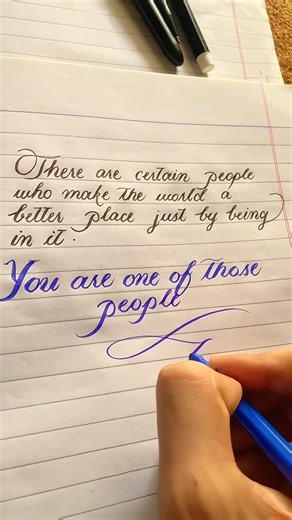 There are certain people
who make the world a
better place just by being
in it.
You are one of those
people